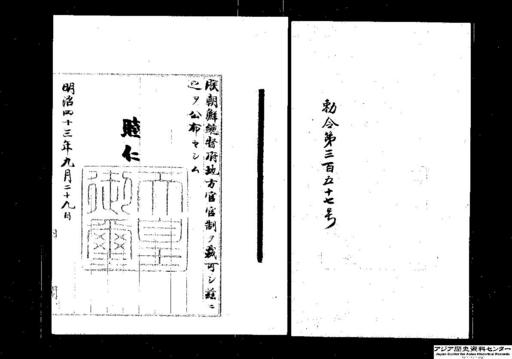 勅令第三百五十七号
朕朝鮮総督府地方官官制ヲ裁可シ茲ニ
之ヲ公布セシム
睦仁
天皇
御璽
明治四十三年九月二十九日
アジア歴史資料センター
Japan Center for Asian Historical Records